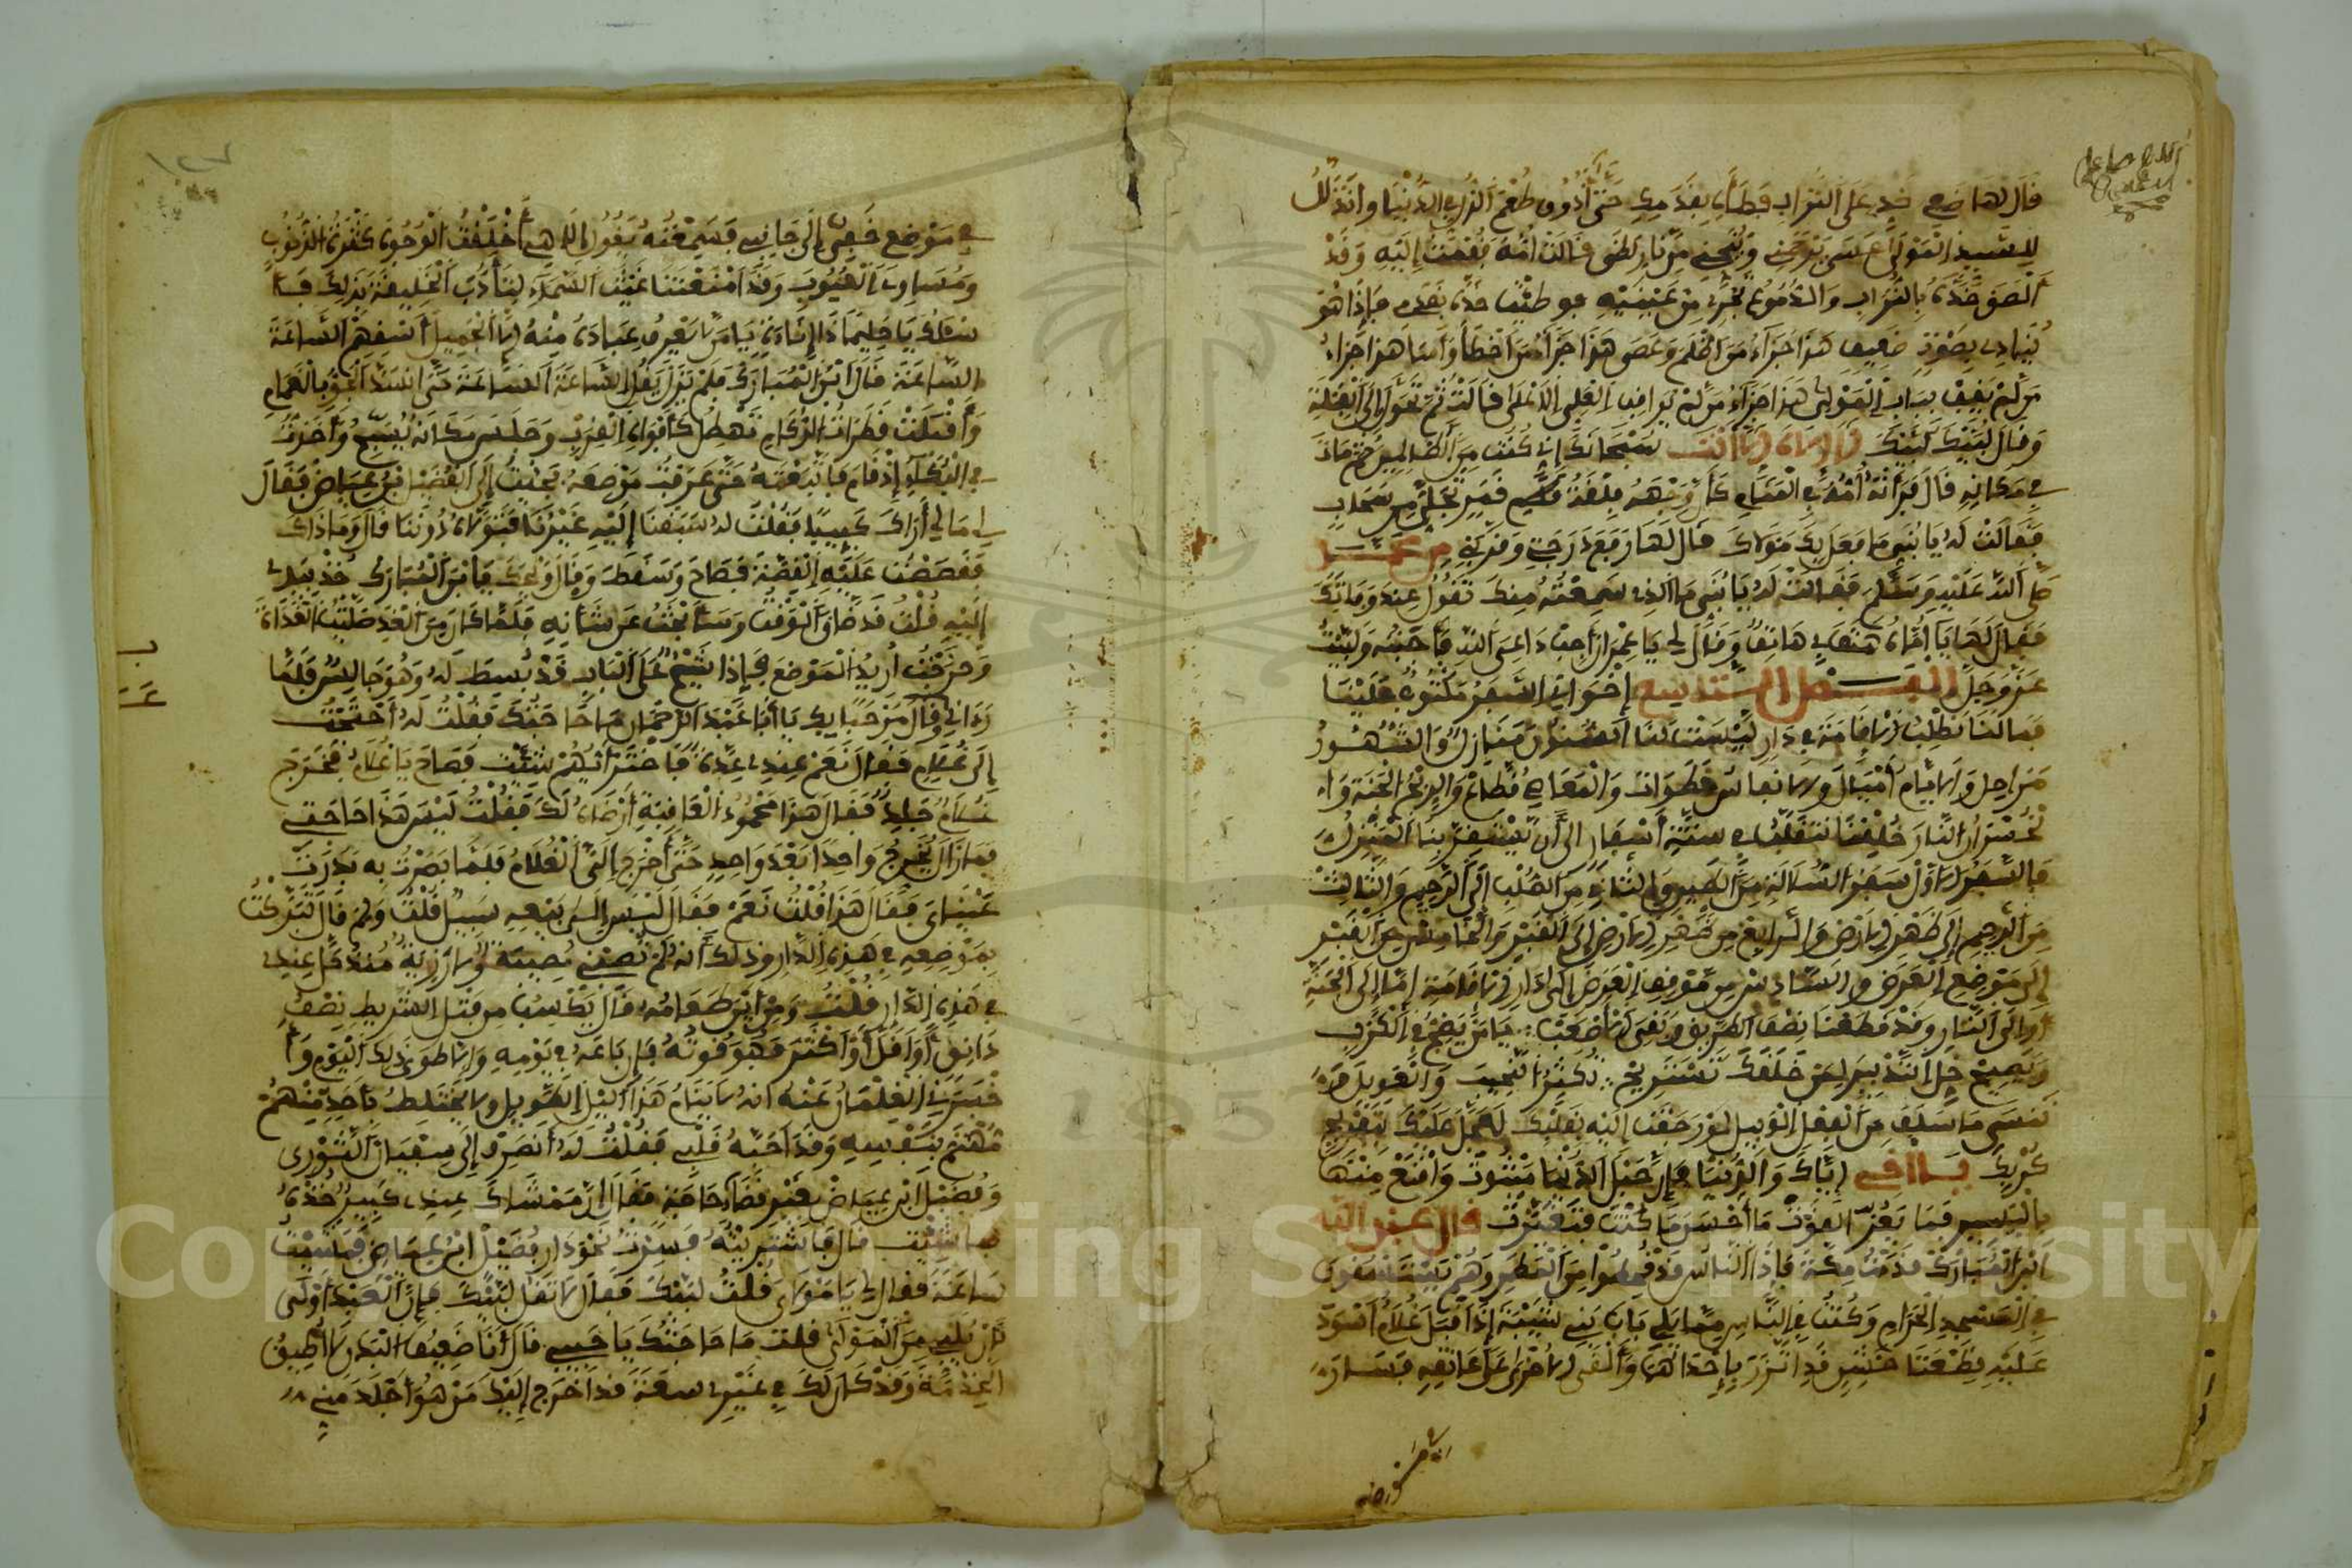 قال لها ضعي خدي على التراب فطأي بقدمك حتى أذوق طعم الذل في الدنيا وأتذلل
للسيد المولى عسى يرحمني وينجيني من نار لظى قالت أمه فقمت إليه وقد
ألصق خده بالتراب والدموع تجري من عينيه فوطئت خده بقدمي فإذا هو
ينادي بصوت ضعيف هذا جزاء من اظلم وعصى هذا جزاء من أخطأ وأسا هذا جزاء
من لم يقف بباب المولى هذا جزاء من لم يراقب العلي الاعلى قالت ثم تحول إلى القبلة
وقال لبيك لبيك لا إله إلا أنت سبحانك إني كنت من الظالمين ثم مات
في مكانه قال فرأته أمه في المنام كأن وجهه فلقة قمر تجلى من سحاب
فقالت له يا بني ما فعل بك مولاك قال لها رفع درجتي وقربني من محمد
صلى الله عليه وسلم فقالت له يا بني ما الذي سمعته منك تقول عند وفاتك
فقال لها يا أماه هتف بي هاتف وقال لي يا عمران أجب داعي الله فأجبته ولبيت
عز وجل الفصل السابع إخواني السفر مكتوب علينا
فما لنا نطلب الإقامة في دار ليست لنا السنون منازل والشهور
مراحل والأيام أميال والأنفاس خطوات والمعاصي قطاع والربح الجنة وا
لخسران النار خلقنا نتقلب في ستة أسفار إلى أن يستقر بنا المنزل
فالسفر الأول سفر السلالة من الطين والثاني من الصلب إلى الرحم والثالث
من الرحم إلى ظهر الأرض والرابع من ظهر الأرض إلى القبر والخامس من القبر
إلى موضع العرض والسادس من موقف العرض إلى دار الإقامة إما إلى الجنة
أو إلى النار وقد قطعنا نصف الطريق وبقي الأصعب يا من يضج في الكرب
ويصيح خل التدبير لمن خلقك تستريح تكثر النحيب والعويل
تنسى ما سلف من الفعل الوبيل لو رجعت إليه بقلبك لعجل عليك بتفريج
كربك يا أخي إياك والدنيا فإن حبل الدنيا مبتوت واقنع منها
باليسير فما يعز القوت قال عبد الله
ابن المبارك قدمت مكة فإذا الناس قد قحطوا من المطر وهم يستسقون
في المسجد الحرام وكنت في الناس مما يلي باب بني شيبة إذ أقبل غلام أسود
عليه قطعتا خيش قد اتزر بإحداهما وألقى الأخرى على عاتقه فصار
في موضع خفي إلى جانبي فسمعته يقول إلاهي أخلقت الوجوه كثرة الذنوب
ومساوي العيوب وقد امنعتنا غيث السماء لتأدب الخليقة بذلك فأ
سئلك يا حليما ذا إناءة يا من لا يعرف عباده منه إلا الجميل أسقهم الساعة
الساعة قال ابن المبارك فلم يزل يقول الساعة الساعة حتى انسد الجو بالغمام
وأقبلت قطرات الركام تهطل كأفواه القرب وجلس مكانه يسبح وأخذت
في البكاء إذ قام فاتبعته حتى عرفت موضعه فجئت إلى الفضيل بن عياض فقال
لي ما لي أراك كئيبا فقلت له سبقنا إليه غيرنا فتولاه دوننا قال وما ذاك
فقصصت عليه القصة فصاح وسقط وقال ويحك يا ابن المبارك خذني
إليه قلت قد ضاق الوقت وسأبحث عن شأنه فلما كان من الغد صليت الغداة
وخرجت أريد الموضع فإذا شيخ على الباب قد بسط له وهو جالس فلما
رءاني قال مرحبا بك يا أبا عبد الرحمان ما حاجتك فقلت له أحتجت
إلى غلام فقال نعم عندي عدة فاختر أيهم شئت فصاح يا غلام فخرج
غلام جليد فقال هذا محمود العاقبة أرضاه لك فقلت ليس هذا حاجتي
فما زال يخرج واحدا بعد واحد حتى أخرج إلي الغلام فلما بصرت به بدرت
عيناي فقال هذا قلت نعم فقال ليس إلى بيعه سبيل قلت ولم قال لتبركت
بموضعه في هذه الدار وذلك أنه لم تصبني مصيبة ولا رزية منذ حل عندي
في هذه الدار قلت ومن أين طعامه قال يكسب من فتل الشريط نصف
دانق أو أقل أو أكثر فهو قوته فإن باعه في يومه وإلا طوى ذلك اليوم وأ
خبرني الغلمان عنه أنه لا ينام هذا الليل الطويل ولا يختلط بأحد منهم
مهتم بنفسه وقد أحبه قلبي فقلت له أنصرف إلى سفيان الثوري
وفضيل ابن عياض بغير قضاء حاجة فقال إن ممشاك عندي كبير خذه
بما شئت قال فاشتريته فسرت نحو دار فضيل ابن عياض فمشيت
ساعة فقال لي يا مولاي قلت لبيك فقال لا تقل لبيك فإن العبد أولى
بأن يلبي من المولى قلت ما حاجتك يا حبيبي قال أنا ضعيف البدن لا أطيق
الخدمة وقد كان لك في غيري سعة قد أخرج إليك من هو أجلد مني